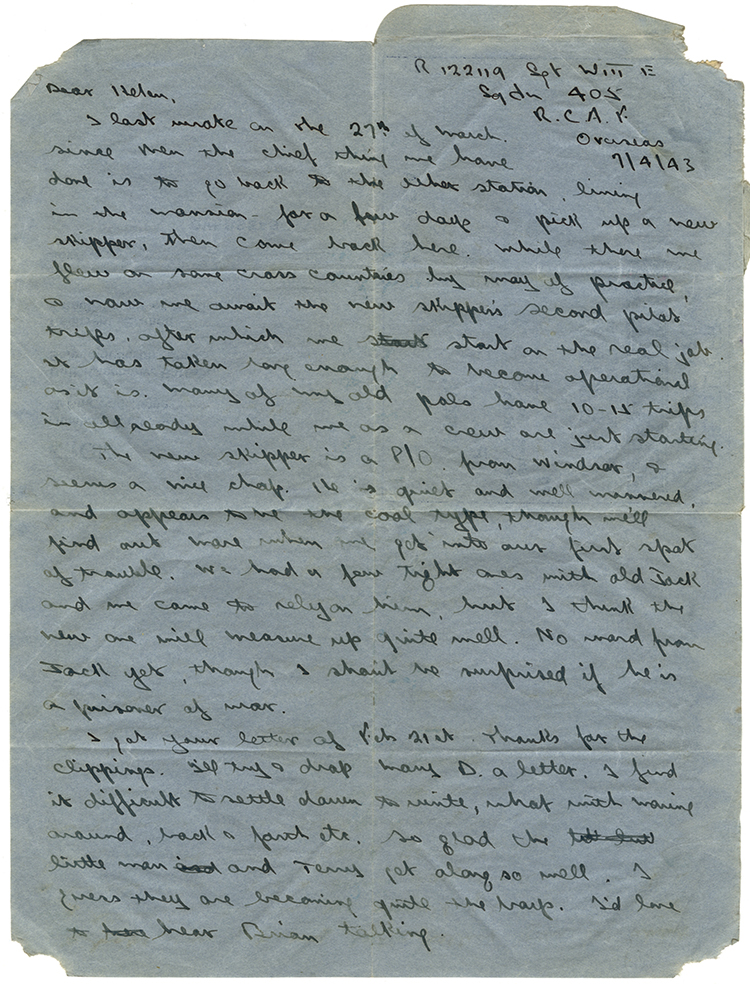 R 122119 Sgt Will E
Sqdn 405
R.C.A.F.
Overseas
7/4/43
Dear Helen,
I last wrote on the 27th of March.
since then the chief thing we have
done is to go back to the other station, living
in the mansion - for a few days & pick up a new
skipper, then come back here. While there we
flew on some cross countries by way of practice,
& now we await the new skipper's second pilot
trips, after which we start start on the real job.
it has taken long enough to become operational
as it is. Many of my old pals have 10-15 trips
in all ready while we as a crew are just starting.
The new skipper is a P/O. from Windsor, &
seems a nice chap. He is quiet and well mannered,
and appears to be the cool type, though we'll
find out more when we get into our first spot
of trouble. We had a few tight ones with old Jack
and we came to rely on him, but I think the
new one will measure up quite well. No word from
Jack yet, though I shan't be surprised if he is
a prisoner of war.
I got your letter of Feb 21st. Thanks for the
clippings. I'll try & drop Mary B. a letter. I find
it difficult to settle down to write, what with moving
around, back & forth etc. So glad the
little man and Terry get along so well. I
guess they are becoming quite the boys. I'd love
to hear Brian talking.